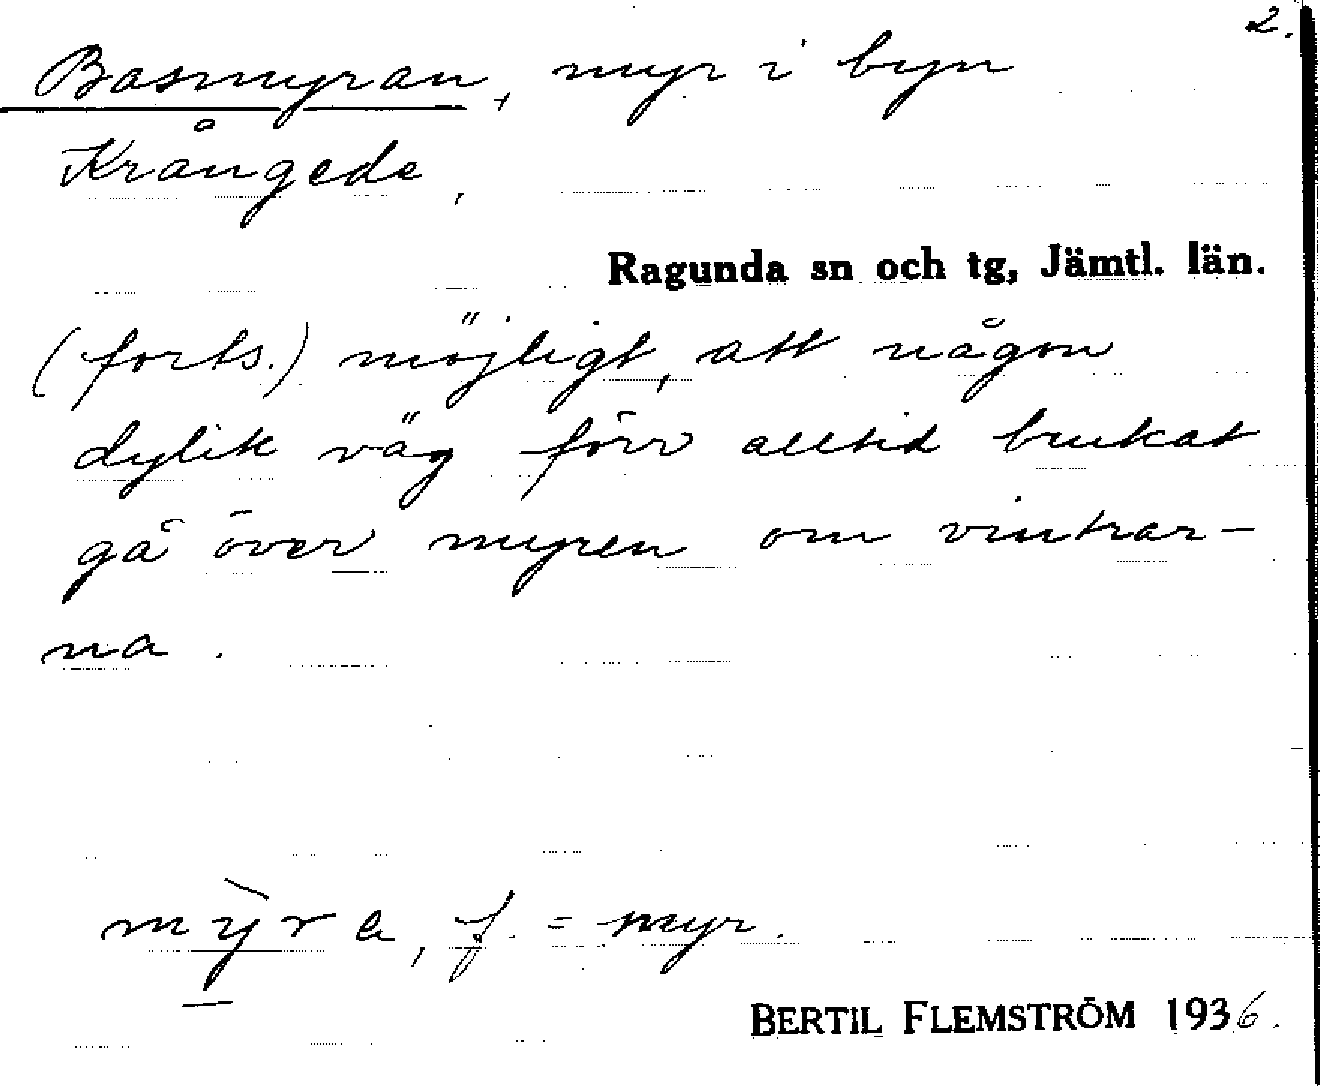 2.
Basmyran, myr i byn
Krångede,
Ragunda sn och tg, Jämtl. län.
(forts.) möjligt, att någon
dylik väg förr alltid brukat
gå över myren om vintrar-
na.
mỳra, f. = myr.
BERTIL FLEMSTRÖM 1936.